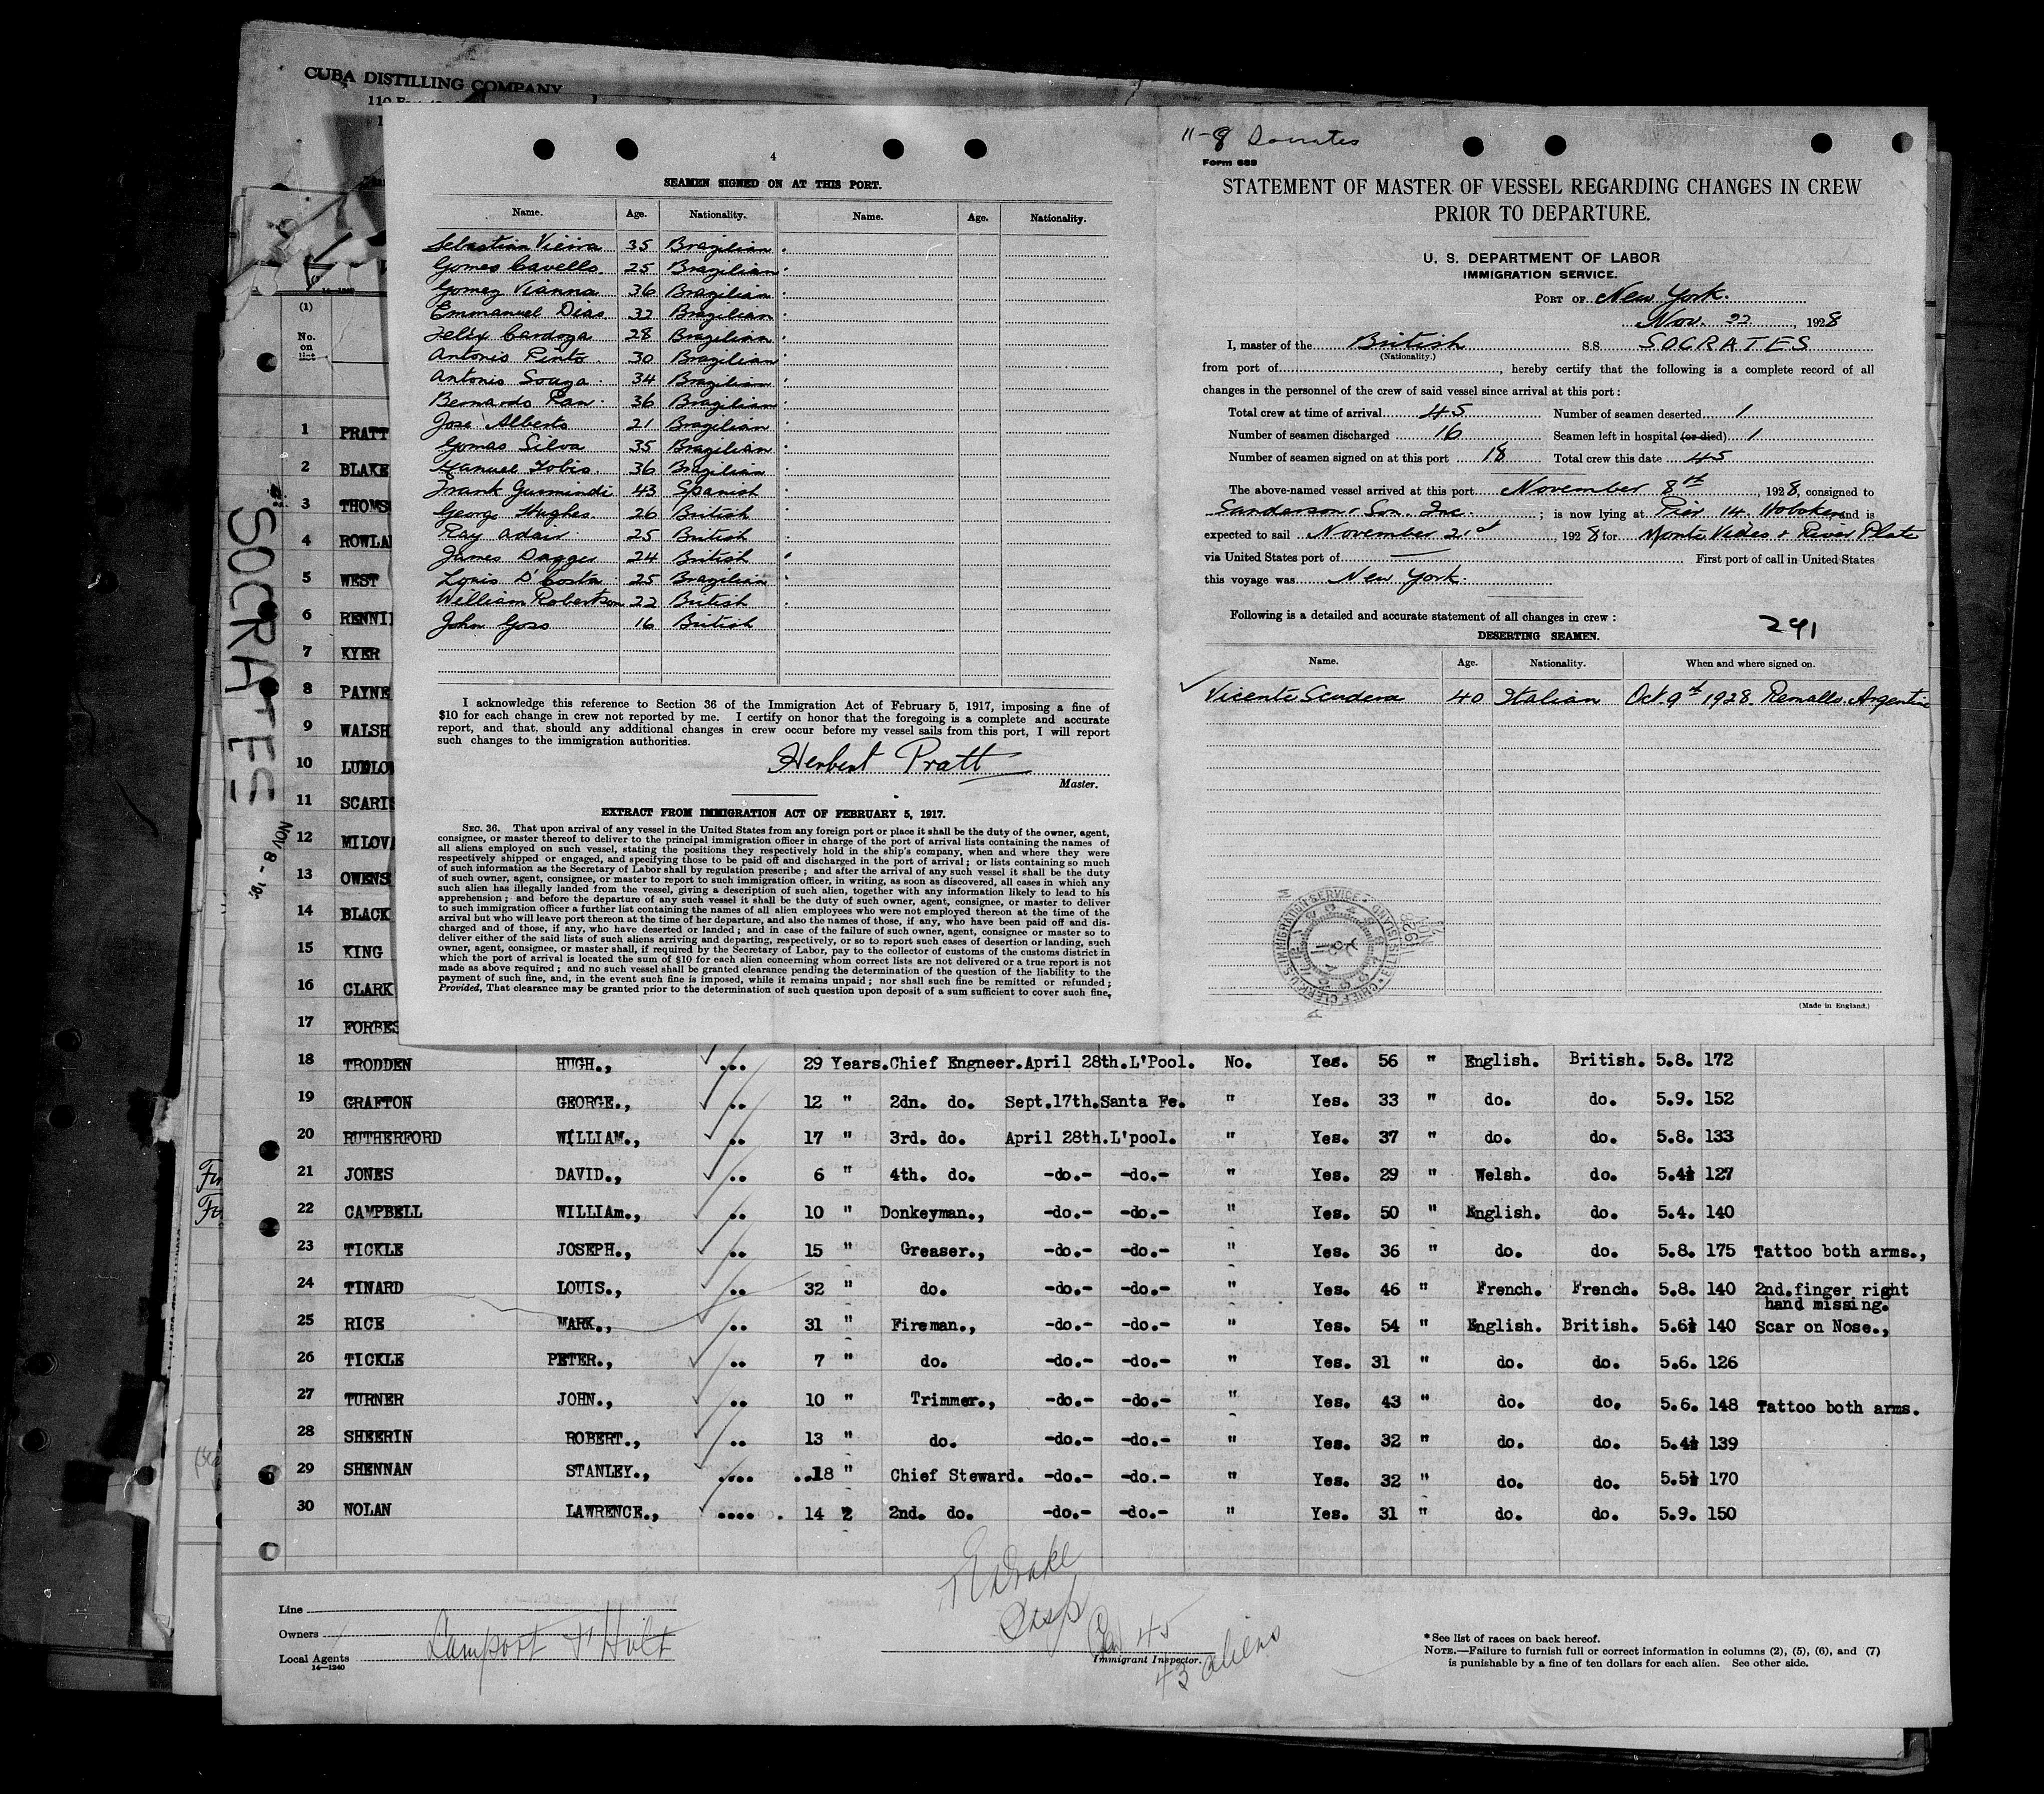 CUBA DISTILLING COMPANY
4
SEAMEN SIGNED ON AT THIS PORT.
Name. Age. Nationality. Name. Age. Nationality.
Sebastian Vieira 35 Brazilian
Gomes Cavello 25 Brazilian
Gomez Vianna 36 Brazilian
Emmanuel Dias 32 Brazilian
Felix Cardoza 28 Brazilian
Antonio Pinto 30 Brazilian
Antonio Souza 34 Brazilian
Bernardo Ran 36 Brazilian
José Alberto 21 Brazilian
Gomas Silva 35 Brazilian
Manuel Tobis 36 Brazilian
Frank Gusmindi 43 Spanish
George Hughes 26 British
Ray Adair 25 British
James Dagger 24 British
Louis D'Costa 25 Brazilian
William Robertson 22 British
John Goss 16 British
I acknowledge this reference to Section 36 of the Immigration Act of February 5, 1917, imposing a fine of
$10 for each change in crew not reported by me. I certify on honor that the foregoing is a complete and accurate
report, and that, should any additional changes in crew occur before my vessel sails from this port, I will report
such changes to the immigration authorities.
Herbert Pratt
Master.
EXTRACT FROM IMMIGRATION ACT OF FEBRUARY 5, 1917.
SEC. 36. That upon arrival of any vessel in the United States from any foreign port or place it shall be the duty of the owner, agent,
consignee, or master thereof to deliver to the principal immigration officer in charge of the port of arrival lists containing the names of
all aliens employed on such vessel, stating the positions they respectively hold in the ship's company, when and where they were
respectively shipped or engaged, and specifying those to be paid off and discharged in the port of arrival; or lists containing so much
of such information as the Secretary of Labor shall by regulation prescribe; and after the arrival of any such vessel it shall be the duty
of such owner, agent, consignee, or master to report to such immigration officer, in writing, as soon as discovered, all cases in which any
such alien has illegally landed from the vessel, giving a description of such alien, together with any information likely to lead to his
apprehension; and before the departure of any such vessel it shall be the duty of such owner, agent, consignee, or master to deliver
to such immigration officer a further list containing the names of all alien employees who were not employed thereon at the time of the
arrival but who will leave port thereon at the time of her departure, and also the names of those, if any, who have been paid off and dis-
charged and of those, if any, who have deserted or landed; and in case of the failure of such owner, agent, consignee or master so to
deliver either of the said lists of such aliens arriving and departing, respectively, or so to report such cases of desertion or landing, such
owner, agent, consignee, or master, shall, if required by the Secretary of Labor, pay to the collector of customs of the customs district in
which the port of arrival is located the sum of $10 for each alien concerning whom correct lists are not delivered or a true report is not
made as above required; and no such vessel shall be granted clearance pending the determination of the question of the liability to the
payment of such fine, and, in the event such fine is imposed, while it remains unpaid; nor shall such fine be remitted or refunded;
Provided, That clearance may be granted prior to the determination of such question upon deposit of a sum sufficient to cover such fine,
11-8 Socrates
Form 689
STATEMENT OF MASTER OF VESSEL REGARDING CHANGES IN CREW
PRIOR TO DEPARTURE.
U. S. DEPARTMENT OF LABOR
IMMIGRATION SERVICE.
PORT OF New York.
Nov. 22, 1928
I, master of the British S.S. SOCRATES
(Nationality.)
from port of, hereby certify that the following is a complete record of all
changes in the personnel of the crew of said vessel since arrival at this port:
Total crew at time of arrival 45 Number of seamen deserted 1
Number of seamen discharged 16 Seamen left in hospital (or died) 1
Number of seamen signed on at this port 18 Total crew this date 45
The above-named vessel arrived at this port November 8th, 1928, consigned to
Sanderson & Son. Inc.; is now lying at Pier 14 Hoboken and is
expected to sail November 21st, 1928 for Monte Video & River Plate
via United States port of — First port of call in United States
this voyage was New York.
Following is a detailed and accurate statement of all changes in crew:
291
DESERTING SEAMEN.
Name. Age. Nationality. When and where signed on.
Vicente Scudera 40 Italian Oct. 9th 1928 Argentine
CHIEF CLERK U.S. IMMIGRATION SERVICE ELLIS ISLAND
(Made in England.)
SOCRATES
NOV 8 -
(1)
No.
on
list
1 PRATT
2 BLAKE
3 THOMS
4 ROWLA
5 WEST
6 RENNI
7 KYER
8 PAYNE
9 WALSH
10 LUDLOW
11 SCARIS
12 MILOVA
13 OWENS
14 BLACK
15 KING
16 CLARK
17 FORBES
18 TRODDEN HUGH., 29 Years. Chief Engneer. April 28th. L'Pool. No. Yes. 56 " English. British. 5.8. 172
19 GRAFTON GEORGE., 12 " 2dn. do. Sept.17th. Santa Fe. " Yes. 33 " do. do. 5.9. 152
20 RUTHERFORD WILLIAM., 17 " 3rd. do. April 28th. L'pool. " Yes. 37 " do. do. 5.8. 133
21 JONES DAVID., 6 " 4th. do. -do.- -do.- " Yes. 29 " Welsh. do. 5.4½ 127
22 CAMPBELL WILLIAm., 10 " Donkeyman., -do.- -do.- " Yes. 50 " English. do. 5.4. 140
23 TICKLE JOSEPH., 15 " Greaser., -do.- -do.- " Yes. 36 " do. do. 5.8. 175 Tattoo both arms.,
24 TINARD LOUIS., 32 " do. -do.- -do.- " Yes. 46 " French. French. 5.8. 140 2nd.finger right
hand missing.
25 RICE MARK., 31 " Fireman., -do.- -do.- " Yes. 54 " English. British. 5.6½ 140 Scar on Nose.,
26 TICKLE PETER., 7 " do. -do.- -do.- " Yes. 31 " do. do. 5.6. 126
27 TURNER JOHN., 10 " Trimmer., -do.- -do.- " Yes. 43 " do. do. 5.6. 148 Tattoo both arms.
28 SHEERIN ROBERT., 13 " do. -do.- -do.- " Yes. 32 " do. do. 5.4½ 139
29 SHENNAN STANLEY., 18 " Chief Steward. -do.- -do.- " Yes. 32 " do. do. 5.5½ 170
30 NOLAN LAWRENCE., 14 2 2nd. do. -do.- -do.- " Yes. 31 " do. do. 5.9. 150
Drake
Insp
45
43 aliens
Line
Owners Lamport & Holt
Local Agents
14—1240
Immigrant Inspector.
* See list of races on back hereof.
NOTE.—Failure to furnish full or correct information in columns (2), (5), (6), and (7)
is punishable by a fine of ten dollars for each alien. See other side.